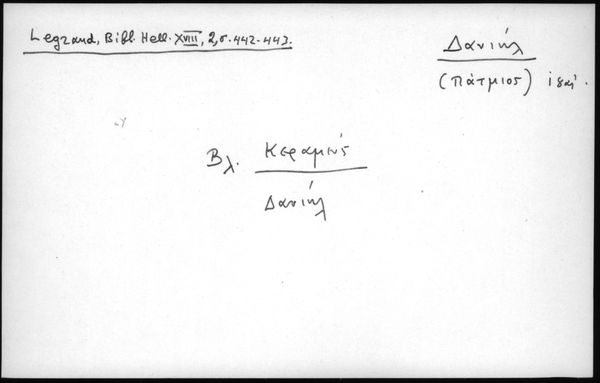 Legrand, Bibl. Hell. XVIII, 2, σ. 442-443.
Δανιήλ
(Πάτμιος)
Βλ. Κεραμεύς
Δανιήλ